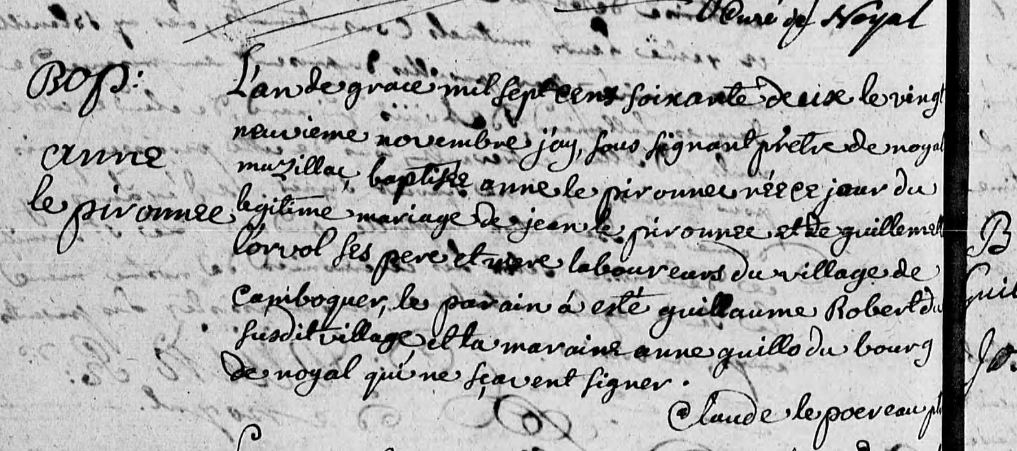 Curé de Noyal
Bap:
anne
le pironnec
L'an de grace mil sept cens soixante deux le vingt
neuvieme novembre j'ay, sous signant prêtre de noyal
muzillac, baptisé anne le pironnec née ce jour du
legitime mariage de jean le pironnec et de guillemett
lorvol ses pere et mere laboureurs du village de
camboquer, le parain á esté guillaume Robert du
susdit village et la maraine anne guillo du bourg
de noyal qui ne sçavent signer.
Claude le poereau ptr
B
Guil
Jos